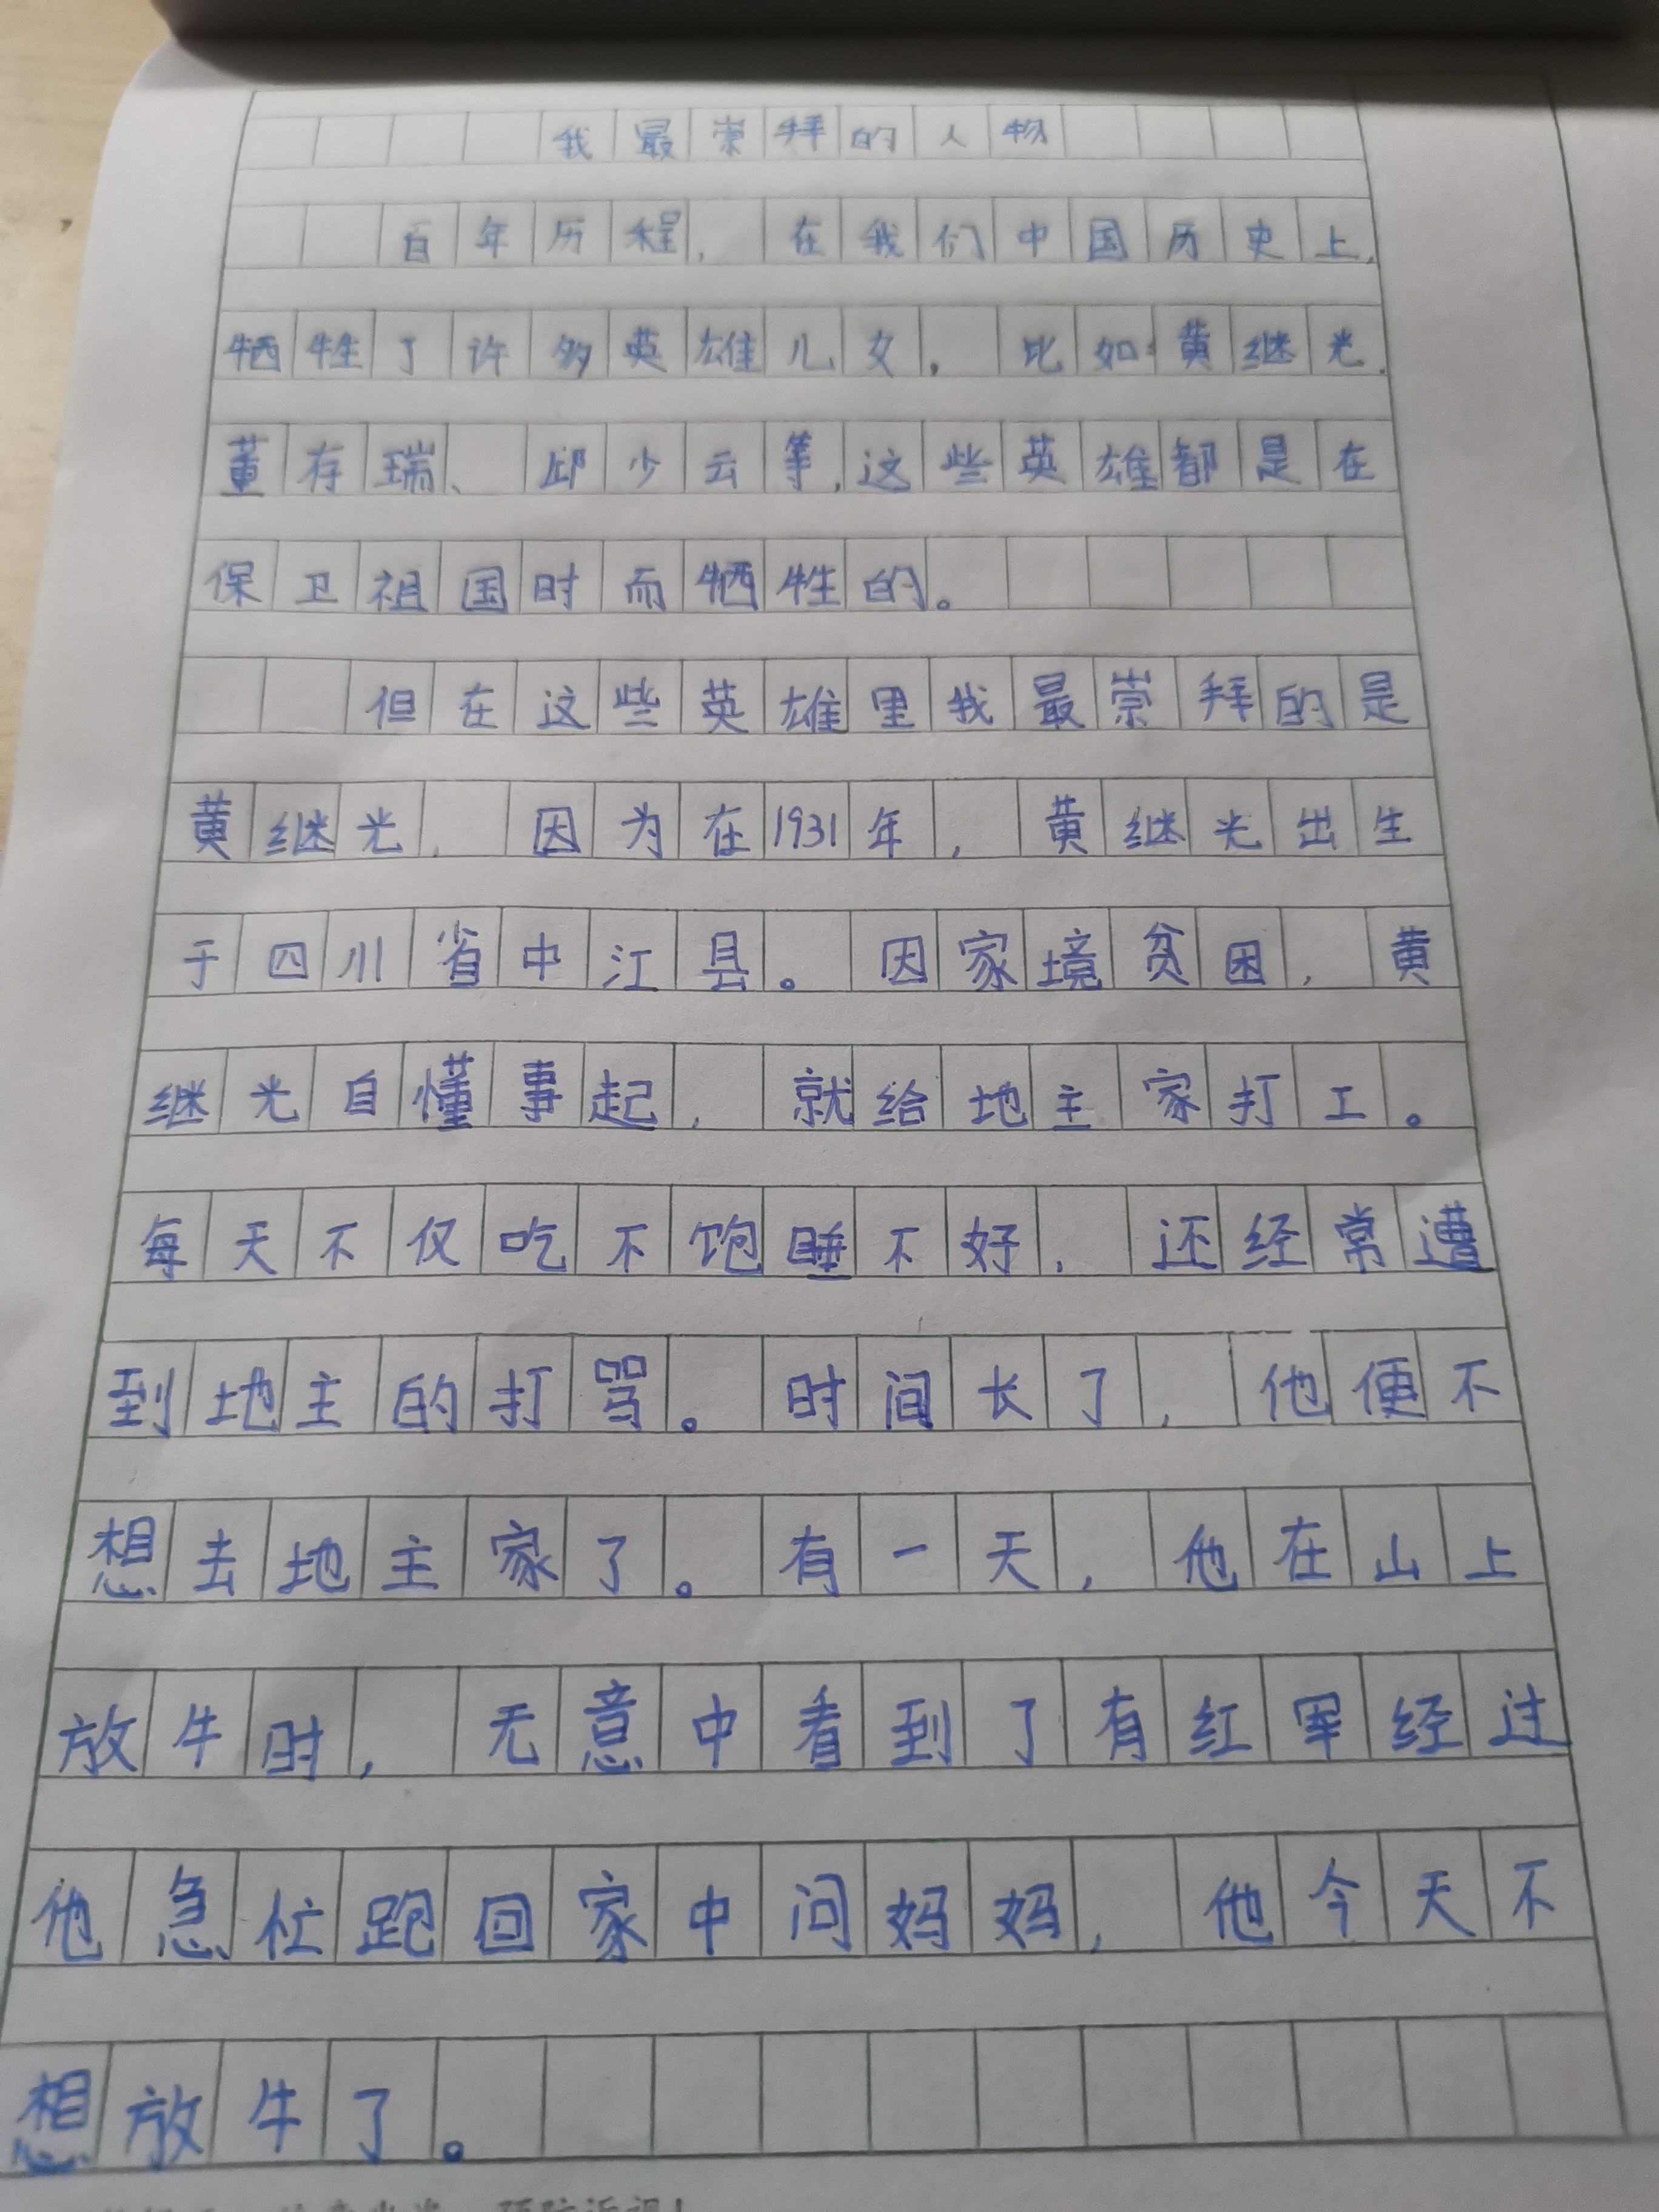 我最崇拜的人物
百年历程，在我们中国历史上，
牺牲了许多英雄儿女，比如黄继光、
董存瑞、邱少云等，这些英雄都是在
保卫祖国时而牺牲的。
但在这些英雄里我最崇拜的是
黄继光，因为在1931年，黄继光出生
于四川省中江县。因家境贫困，黄
继光自懂事起，就给地主家打工。
每天不仅吃不饱睡不好，还经常遭
到地主的打骂。时间长了，他便不
想去地主家了。有一天，他在山上
放牛时，无意中看到了有红军经过
他急忙跑回家中问妈妈，他今天不
想放牛了。